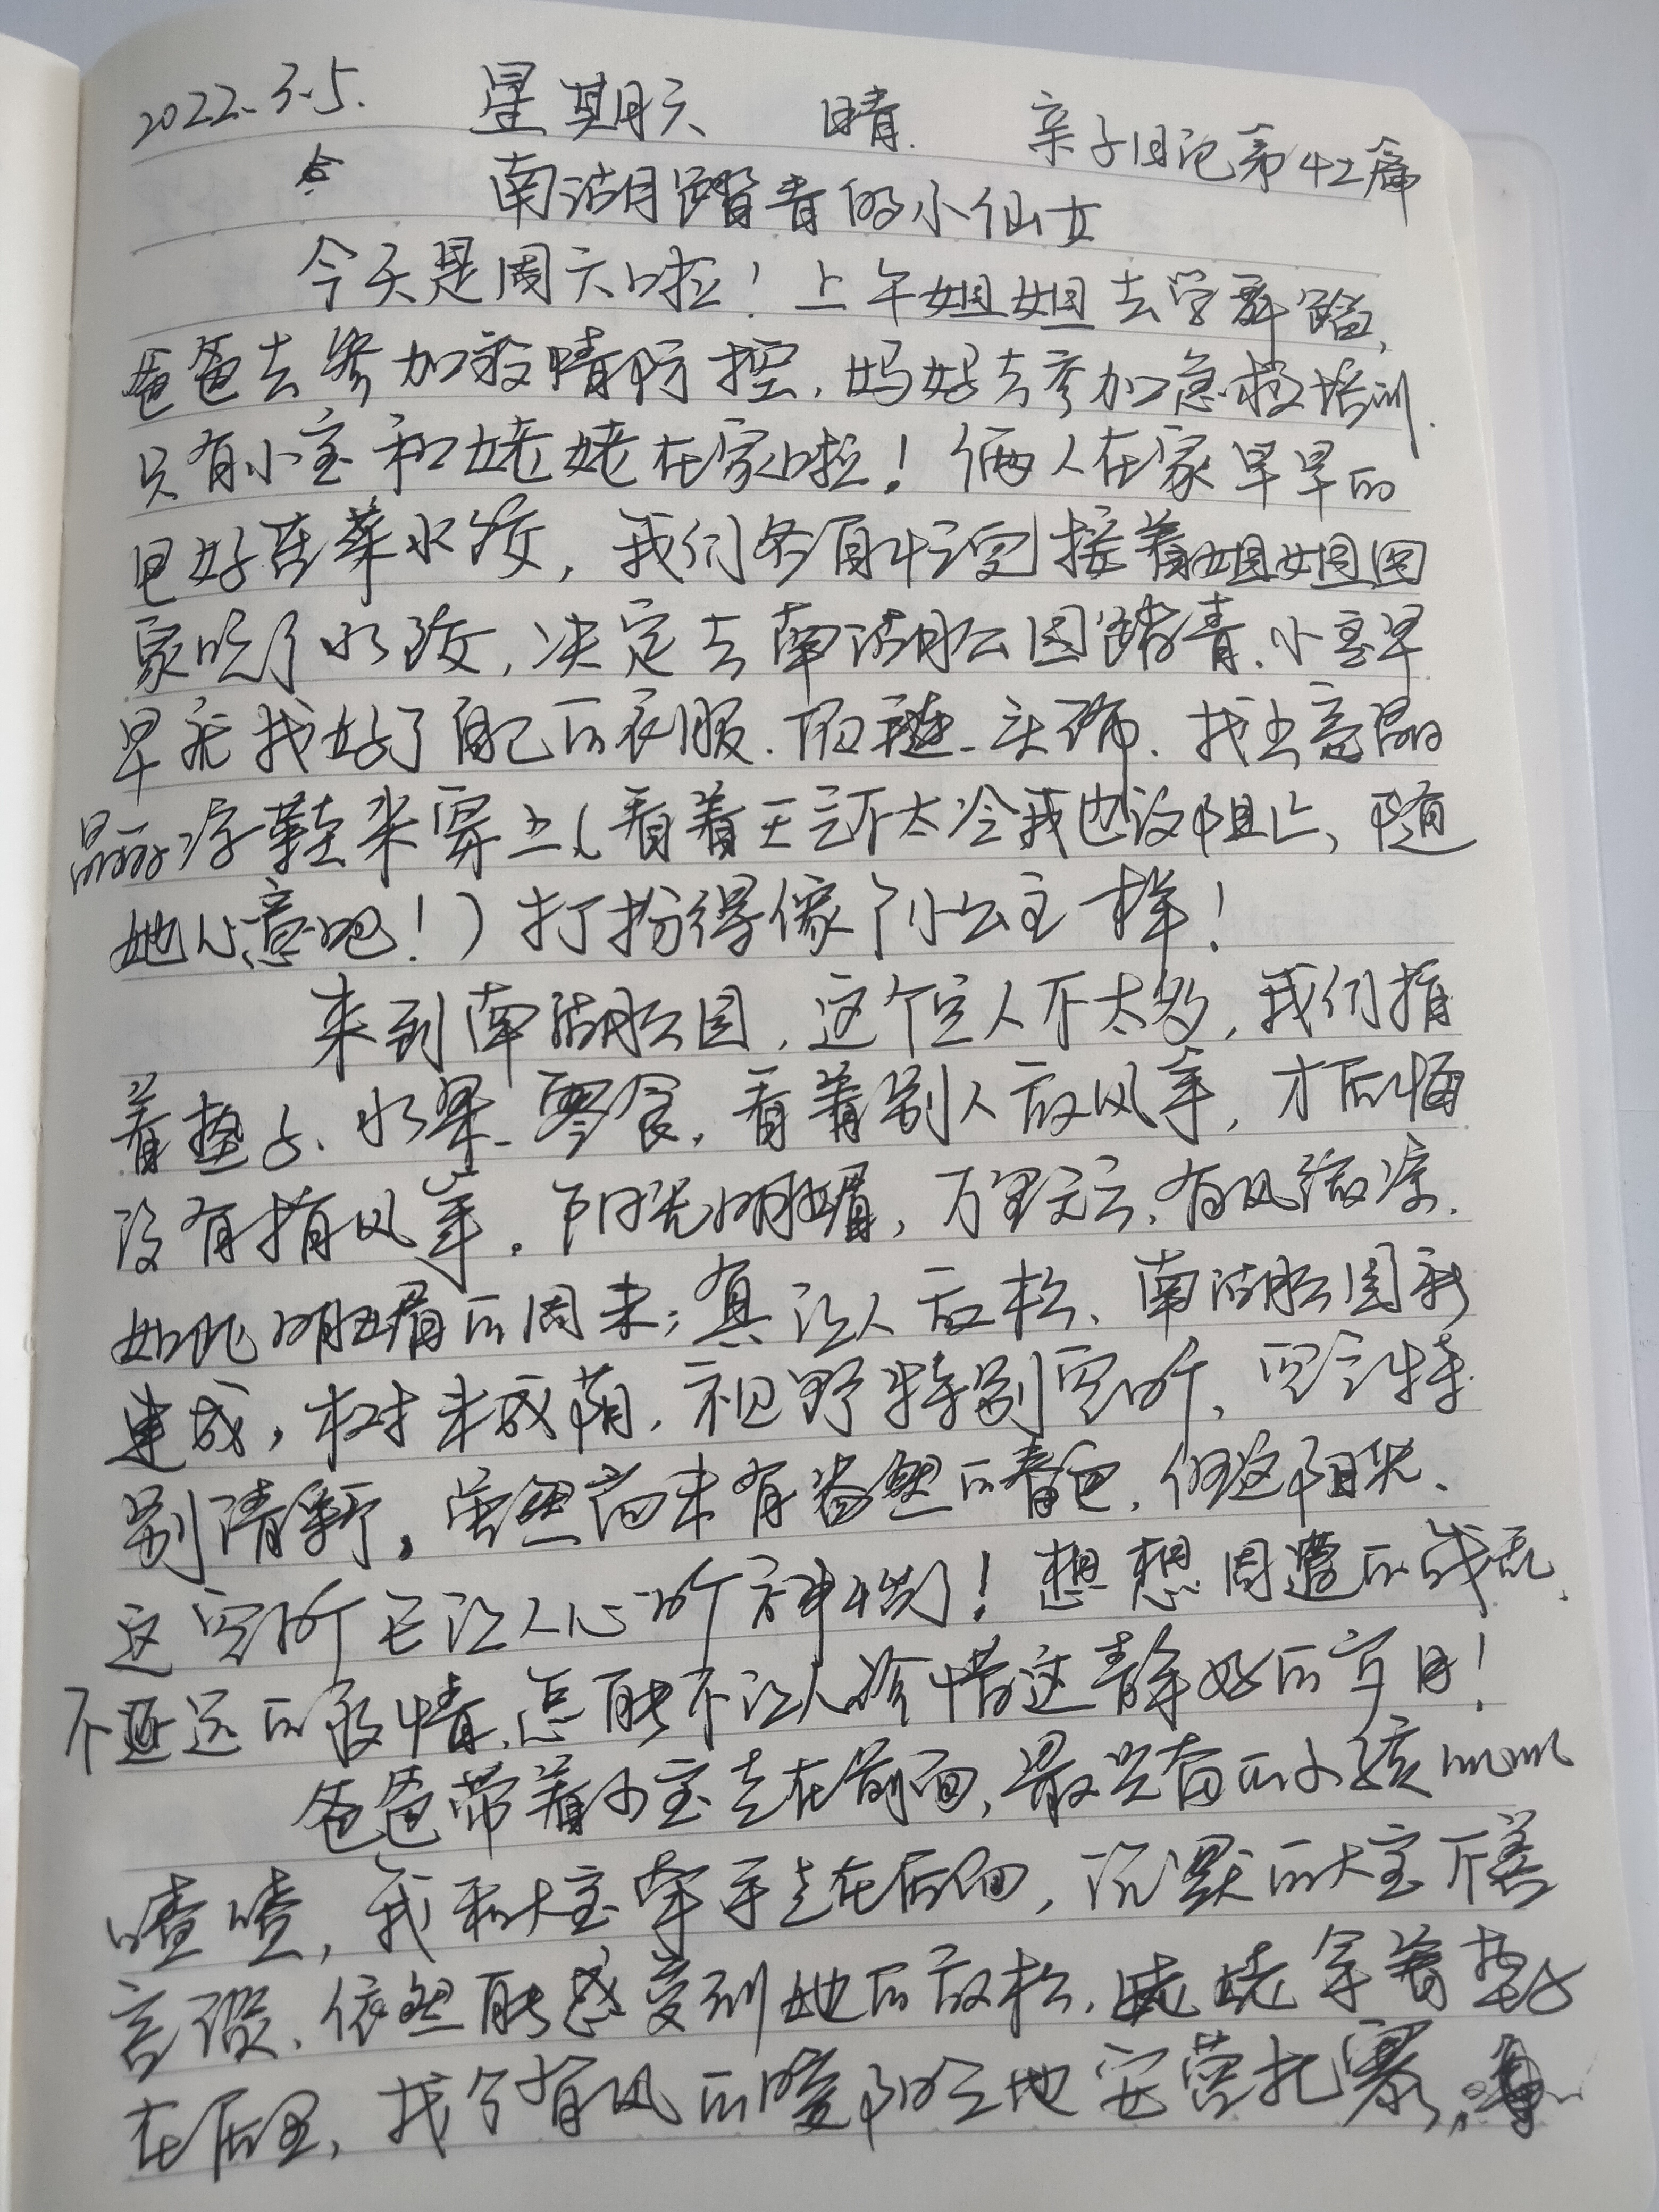 2022.3.5. 星期六 晴. 亲子日记第42篇
南湖踏青的小仙女
今天是周六啦！上午姐姐去学舞蹈,
爸爸去参加疫情防控,妈妈去参加急救培训.
只有小宝和姥姥在家啦！俩人在家早早的
包好荠菜水饺,我们各自忙完接着姐姐回
家吃了水饺,决定去南湖公园踏青.小宝早
早就找好了自己的衣服.项链.头饰.找出亮晶
晶的凉鞋来穿上(看着天气不太冷我也没阻止,随
她心意吧!)打扮得像个小公主一样!
来到南湖公园,这个点人不太多,我们捎
着垫子、水果、零食,看着别人放风筝,才后悔
没有捎风筝。阳光明媚,万里无云,有风微凉.
如此明媚的周末;真让人放松、南湖公园新
建成,树未成荫,视野特别空旷,空气特
别清新。虽然尚未有盎然的春色,但这阳光、
这空旷已让人心旷神怡了!想想周遭的战乱、
不遥远的疫情,怎能不让人珍惜这静好的岁月!
爸爸带着小宝走在前面,最兴奋的小孩叽叽
喳喳,我和大宝牵手走在后面,沉默的大宝不善
言辞、依然能感受到她的放松.姥姥拿着垫子
在后面,找个有风的暖阳之地安营扎寨,